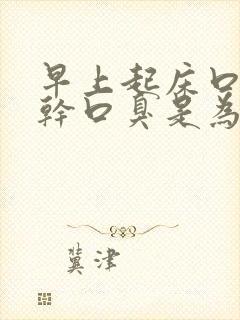 早上起床口
幹口臭是為
冀津